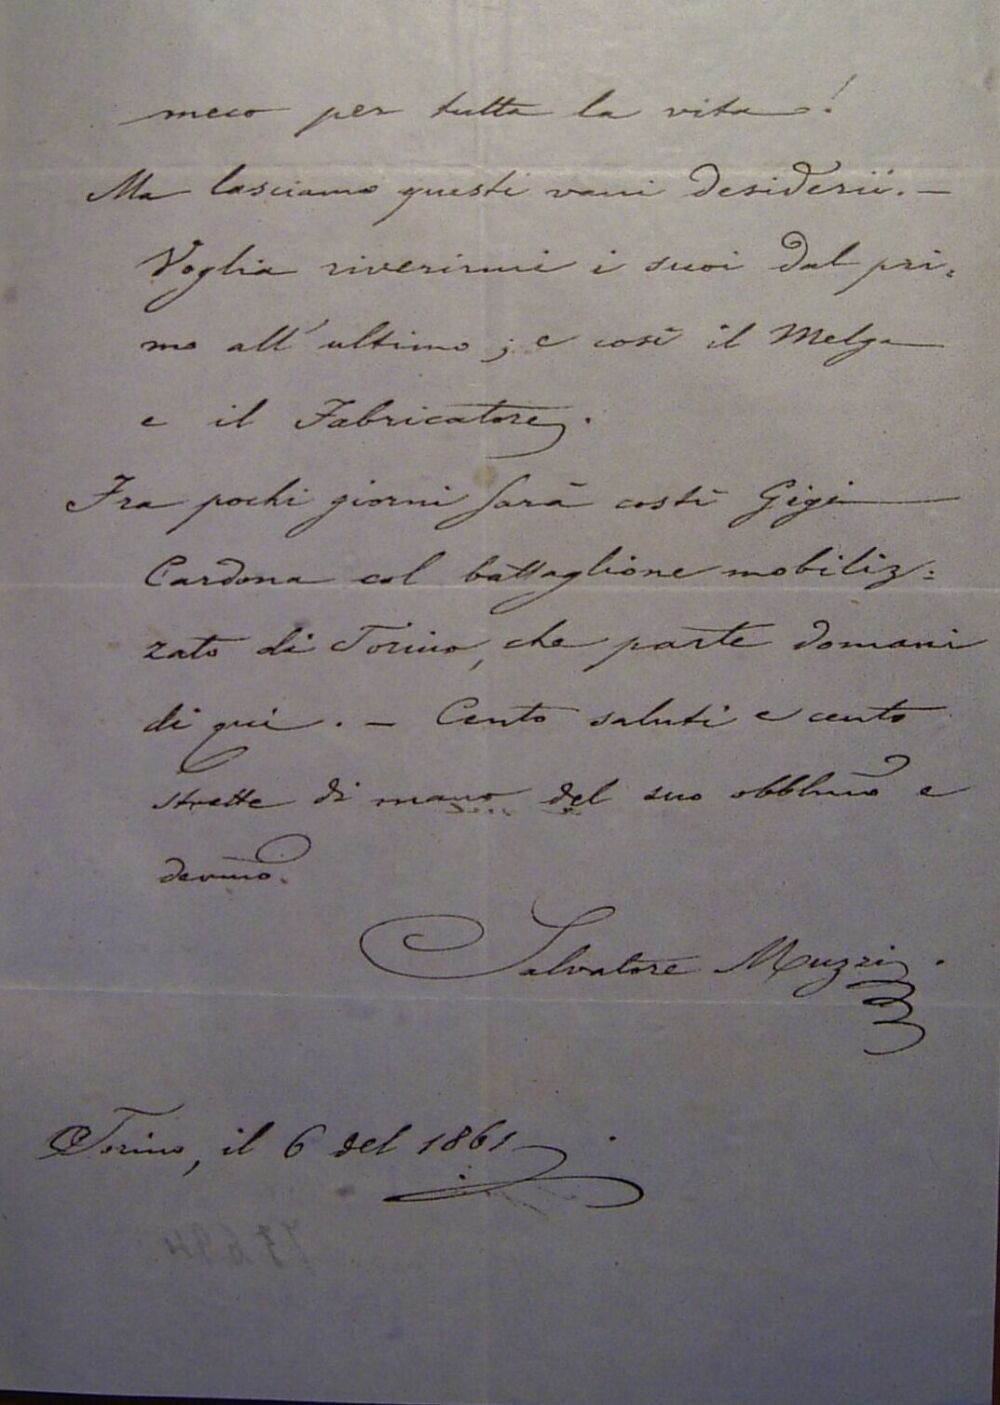 meco per tutta la vita!
Ma lasciamo questi vani desiderii. —
Voglia riverirmi i suoi dal pri-
mo all'ultimo; e così il Melga
e il Fabricatore.
Fra pochi giorni sarà costì Gigi
Cardona col battaglione mobiliz=
zato di Torino, che parte domani
di qui. — Cento saluti e cento
strette di mano del suo obblmo e
devmo.
Salvatore Muzzi.
Torino, il 6 del 1861